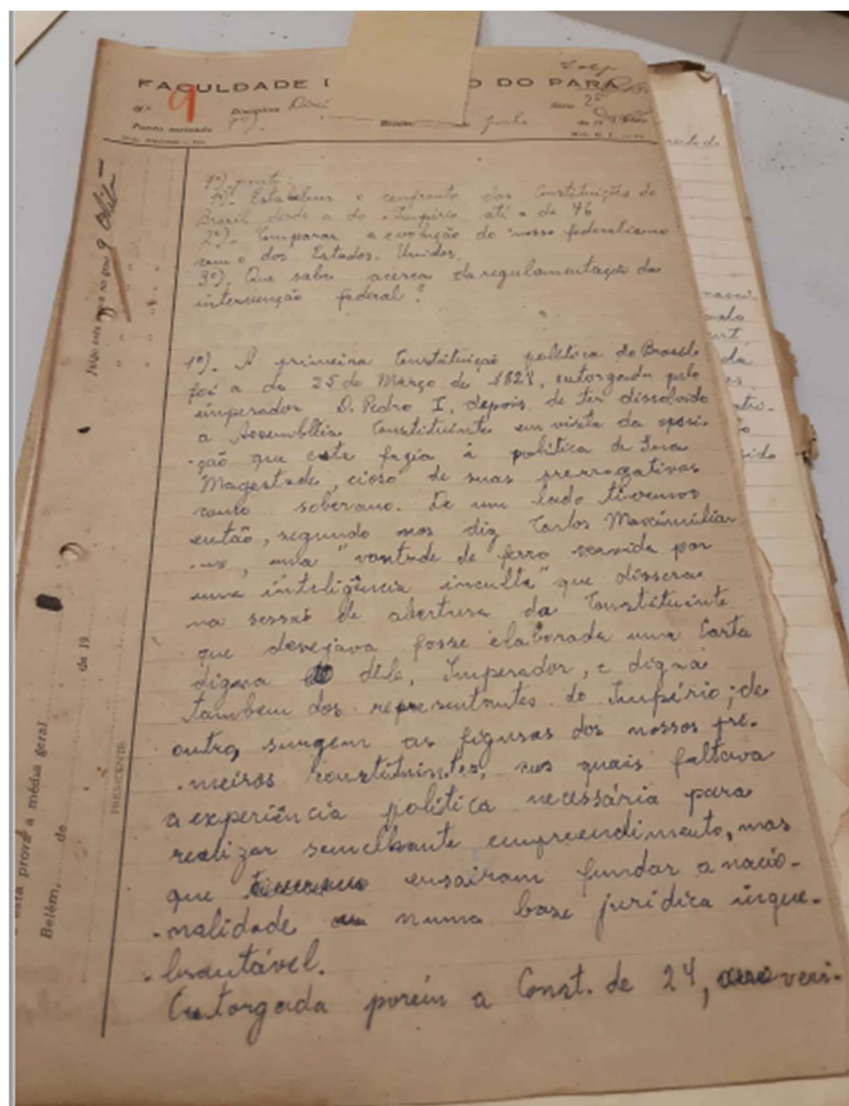 FACULDADE D O DO PARÁ
N.º 9 Disciplina Direi Série 2ª
Ponto sorteado 7º) Belém, de Junho de 19
7º) ponto:
1º)- Estabeleça o confronto das Constituições do
Brasil desde a do Império até a de 46
2º)- Comparar a evolução do nosso federalismo
com o dos Estados-Unidos.
3º). Que sabe acerca da regulamentação da
intervenção federal?
1º). A primeira Constituição política do Brasil
foi a de 25 de Março de 1824, outorgada pelo
imperador D. Pedro I, depois de ter dissolvido
a Assembléia Constituinte em vista da oposi-
-ção que esta fazia à política de Sua
Magestade, cioso de suas prerrogativas
como soberano. De um lado tivemos
então, segundo nos diz Carlos Maximilia-
-no, uma "vontade de ferro servida por
uma inteligência inculta" que dissera
na sessão de abertura da Constituinte
que desejava fosse elaborada uma Carta
digna dêle, Imperador, e digna
tambem dos representantes do Império; de
outro, surgem as figuras dos nossos pri-
-meiros constituintes, nos quais faltava
a experiência política necessária para
realizar semelhante empreendimento, mas
que ensairam fundar a nacio-
-nalidade numa base jurídica inque-
-brantável.
Outorgada porém a Const. de 24, veri-
Julgo esta prova no grau 9
esta prova a média geral
Belém, de de 19
PRESIDENTE